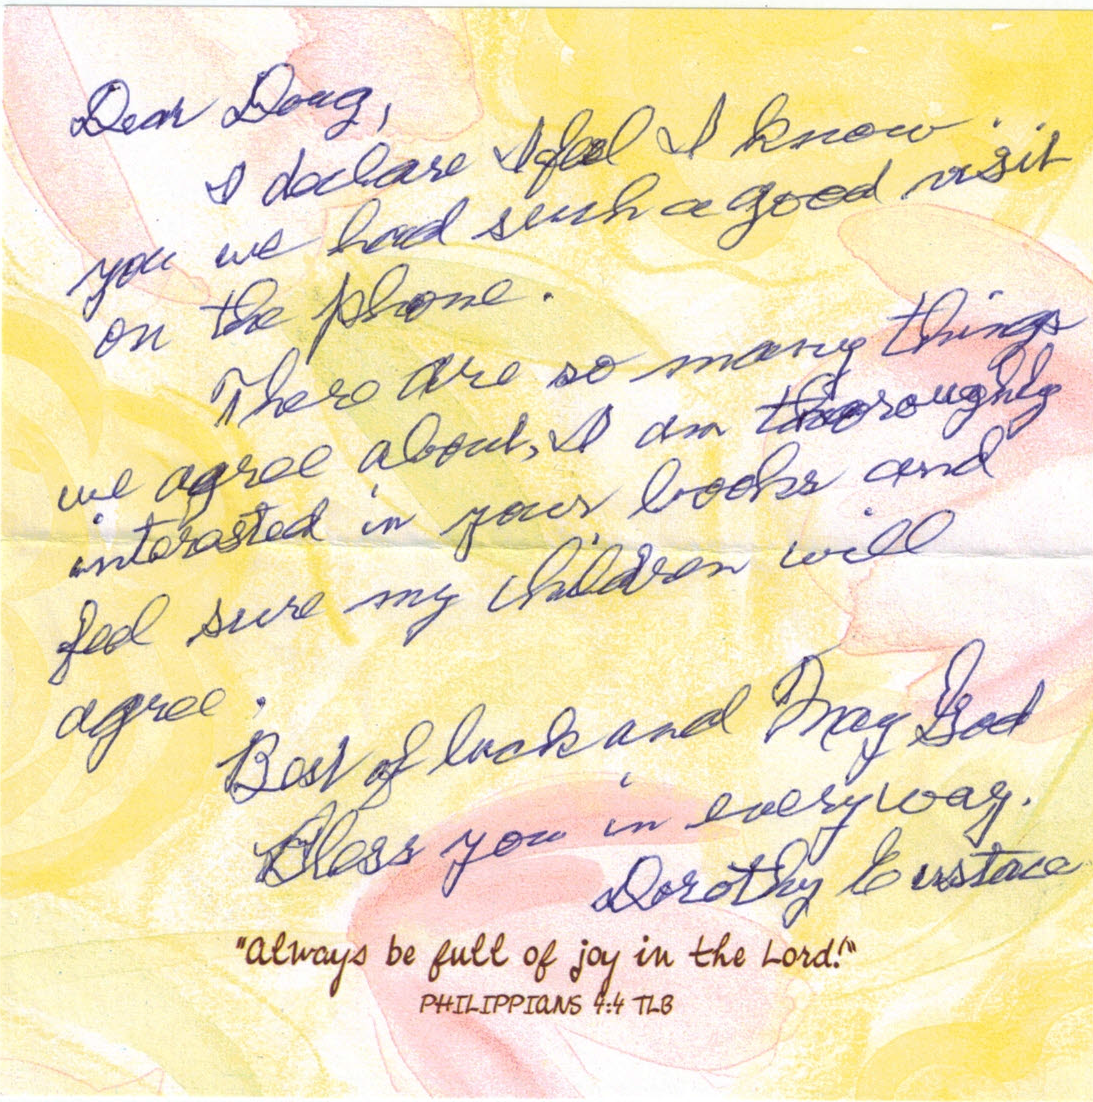 Dear Doug,
I declare I feel I know
you we had such a good visit
on the phone.
There are so many things
we agree about, I am thoroughly
interested in your books and
feel sure my children will
agree.
Best of luck and May God
Bless you in every way.
Dorothy Eustace
"Always be full of joy in the Lord!"
PHILIPPIANS 4:4 TLB